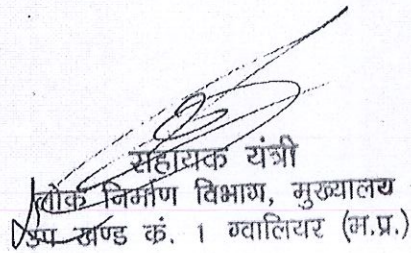 सहायक यंत्री
लोक निर्माण विभाग, मुख्यालय
उप खण्ड कं. 1 ग्वालियर (म.प्र.)